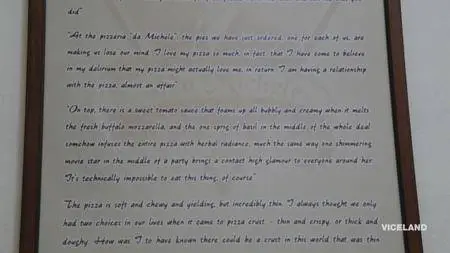 did"
"At the pizzeria "da Michele", the pies we have just ordered, one for each of us, are
making us lose our mind. I love my pizza so much, in fact, that I have come to believe
in my delirium that my pizza might actually love me, in return. I am having a relationship
with the pizza, almost an affair"
"On top, there is a sweet tomato sauce that foams up all bubbly and creamy when it melts
the fresh buffalo mozzarella, and the one sprig of basil in the middle of the whole deal
somehow infuses the entire pizza with herbal radiance, much the same way one shimmering
movie star in the middle of a party brings a contact high glamour to everyone around her.
It's technically impossible to eat this thing, of course"
"The pizza is soft and chewy and yielding, but incredibly thin. I always thought we only
had two choices in our lives when it came to pizza crust - thin and crispy, or thick and
doughy. How was I to have known there could be a crust in this world that was thin
VICELAND